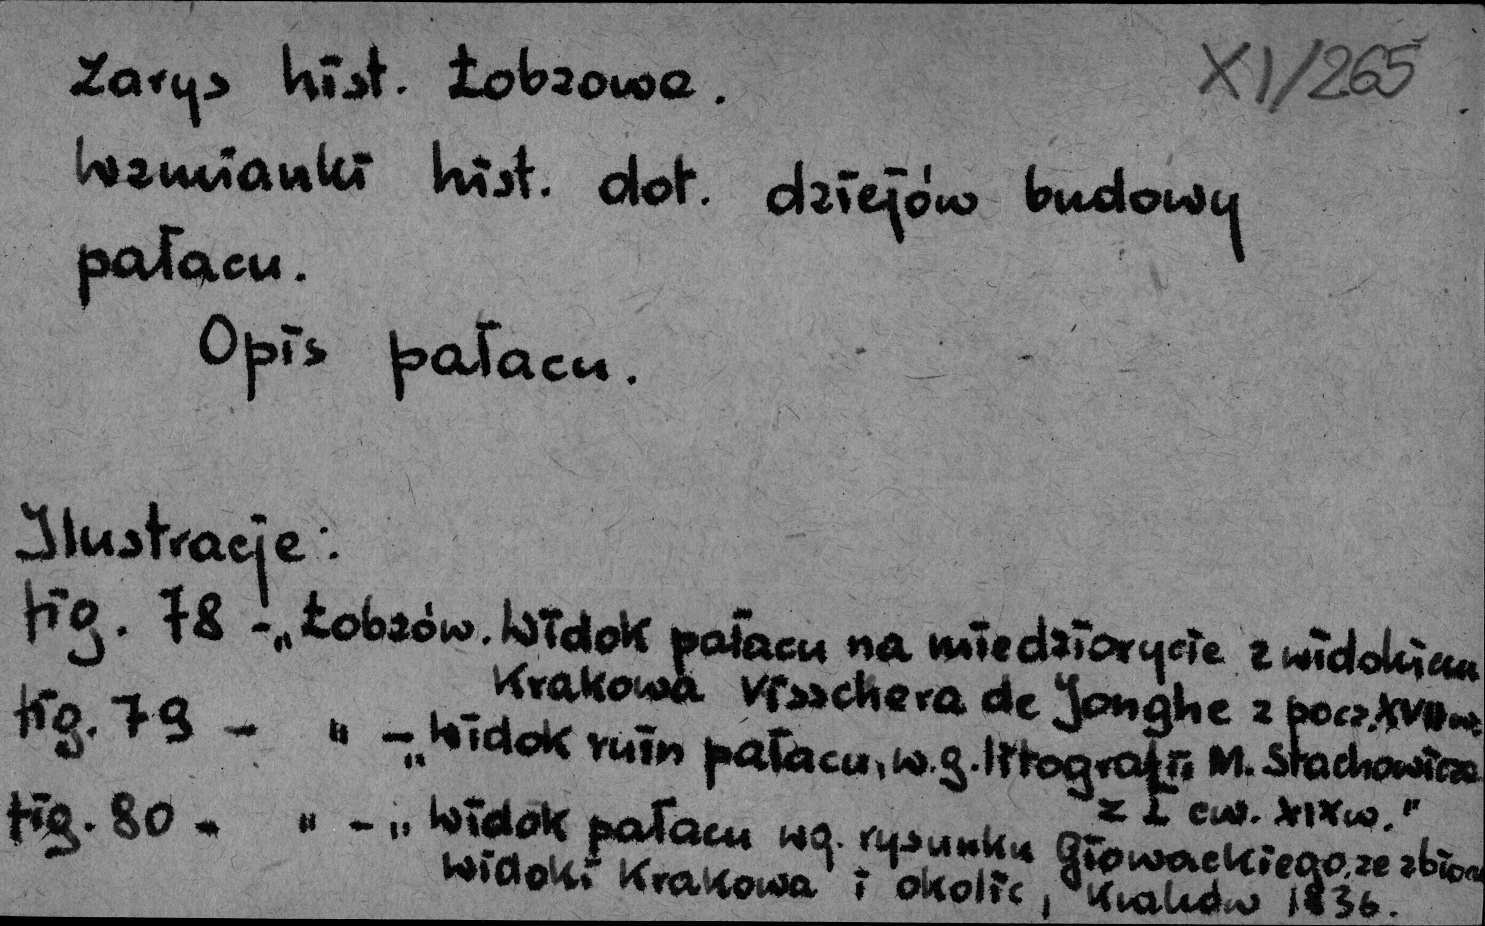 XI/265
Zarys hist. Łobzowa.
Wzmianki hist. dot. dziejów budowy
pałacu.
Opis pałacu.
Ilustracje:
fig. 78 - „Łobzów. Widok pałacu na miedziorycie z widokiem
Krakowa Visschera de Jonghe z pocz. XVII w.
fig. 79 - " - „Widok ruin pałacu, w.g. litografii M. Stachowicza
z I ćw. XIX w."
fig. 80 - " - „Widok pałacu wg. rysunku Głowackiego, ze zbioru
Widoki Krakowa i okolic, Kraków 1836.